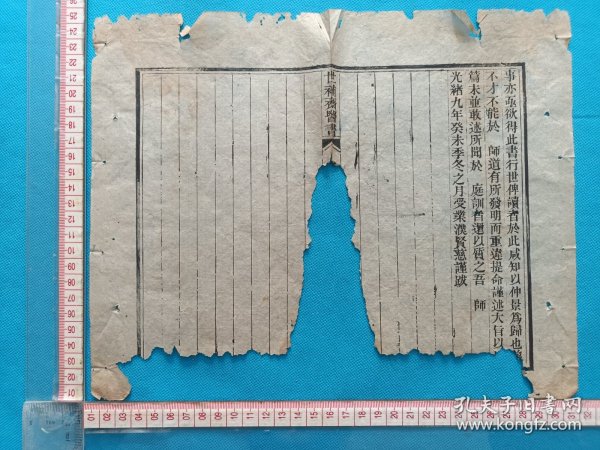 事亦亟欲得此書行世俾讀者於此咸知以仲景爲歸也
不才不能於 師道有所發明而重違提命謹述大旨以
篇末並敢述所聞於 庭訓者還以質之吾 師
光緒九年癸未季冬之月受業濮賢慈謹跋
世補齋醫書
孔夫子旧书网
www.kongfz.com